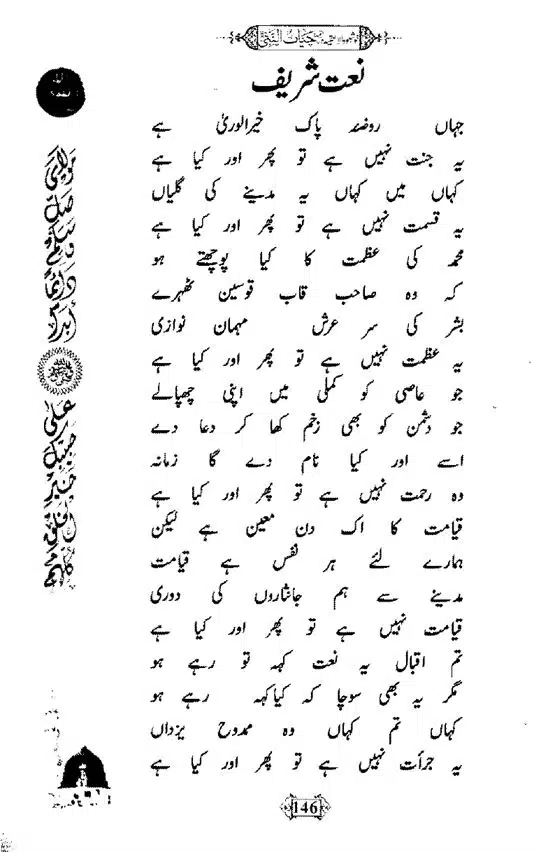 نعت شریف
جہاں روضہ پاک خیرالوریٰ ہے
یہ جنت نہیں ہے تو پھر اور کیا ہے
کہاں میں کہاں یہ مدینے کی گلیاں
یہ قسمت نہیں ہے تو پھر اور کیا ہے
محمد کی عظمت کا کیا پوچھتے ہو
کہ وہ صاحب قاب قوسین ٹھہرے
بشر کی سر عرش مہمان نوازی
یہ عظمت نہیں ہے تو پھر اور کیا ہے
جو عاصی کو کملی میں اپنی چھپالے
جو دشمن کو بھی زخم کھا کر دعا دے
اسے اور کیا نام دے گا زمانہ
وہ رحمت نہیں ہے تو پھر اور کیا ہے
قیامت کا اک دن معین ہے لیکن
ہمارے لئے ہر نفس ہے قیامت
مدینے سے ہم جانثاروں کی دوری
قیامت نہیں ہے تو پھر اور کیا ہے
تم اقبال یہ نعت کہہ تو رہے ہو
مگر یہ بھی سوچا کہ کیا کہہ رہے ہو
کہاں تم کہاں وہ ممدوح یزداں
یہ جرأت نہیں ہے تو پھر اور کیا ہے
146
مولای صل وسلم دائما أبدا
على حبيبك خير الخلق كلهم